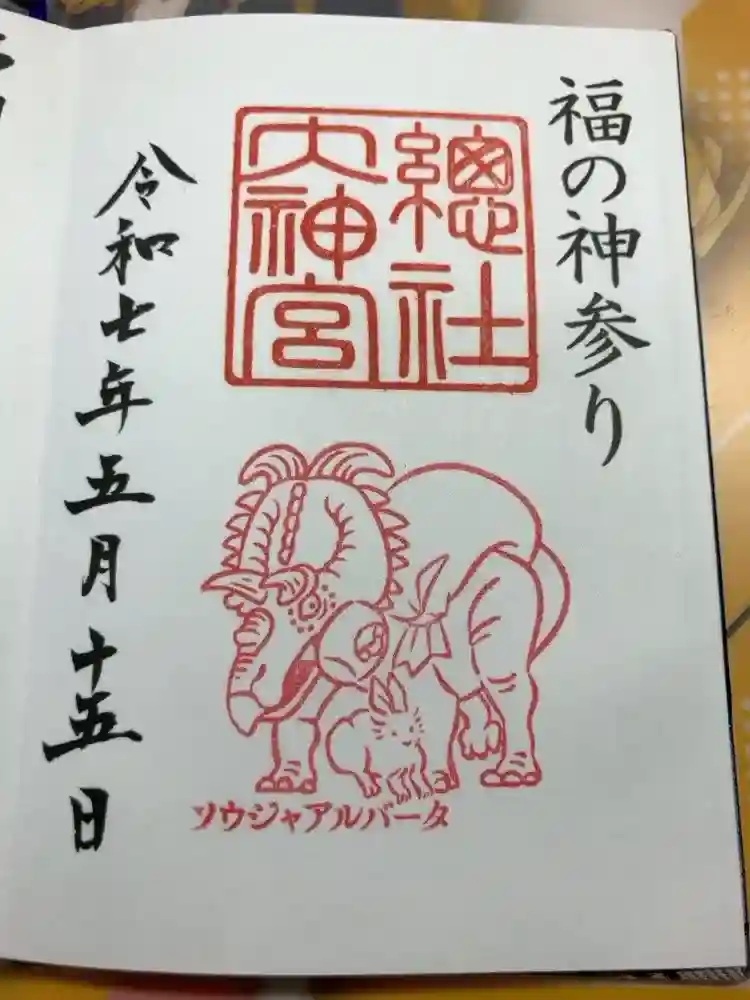 福の神参り
總社
大神宮
ソウジャアルバータ
令和七年五月十五日